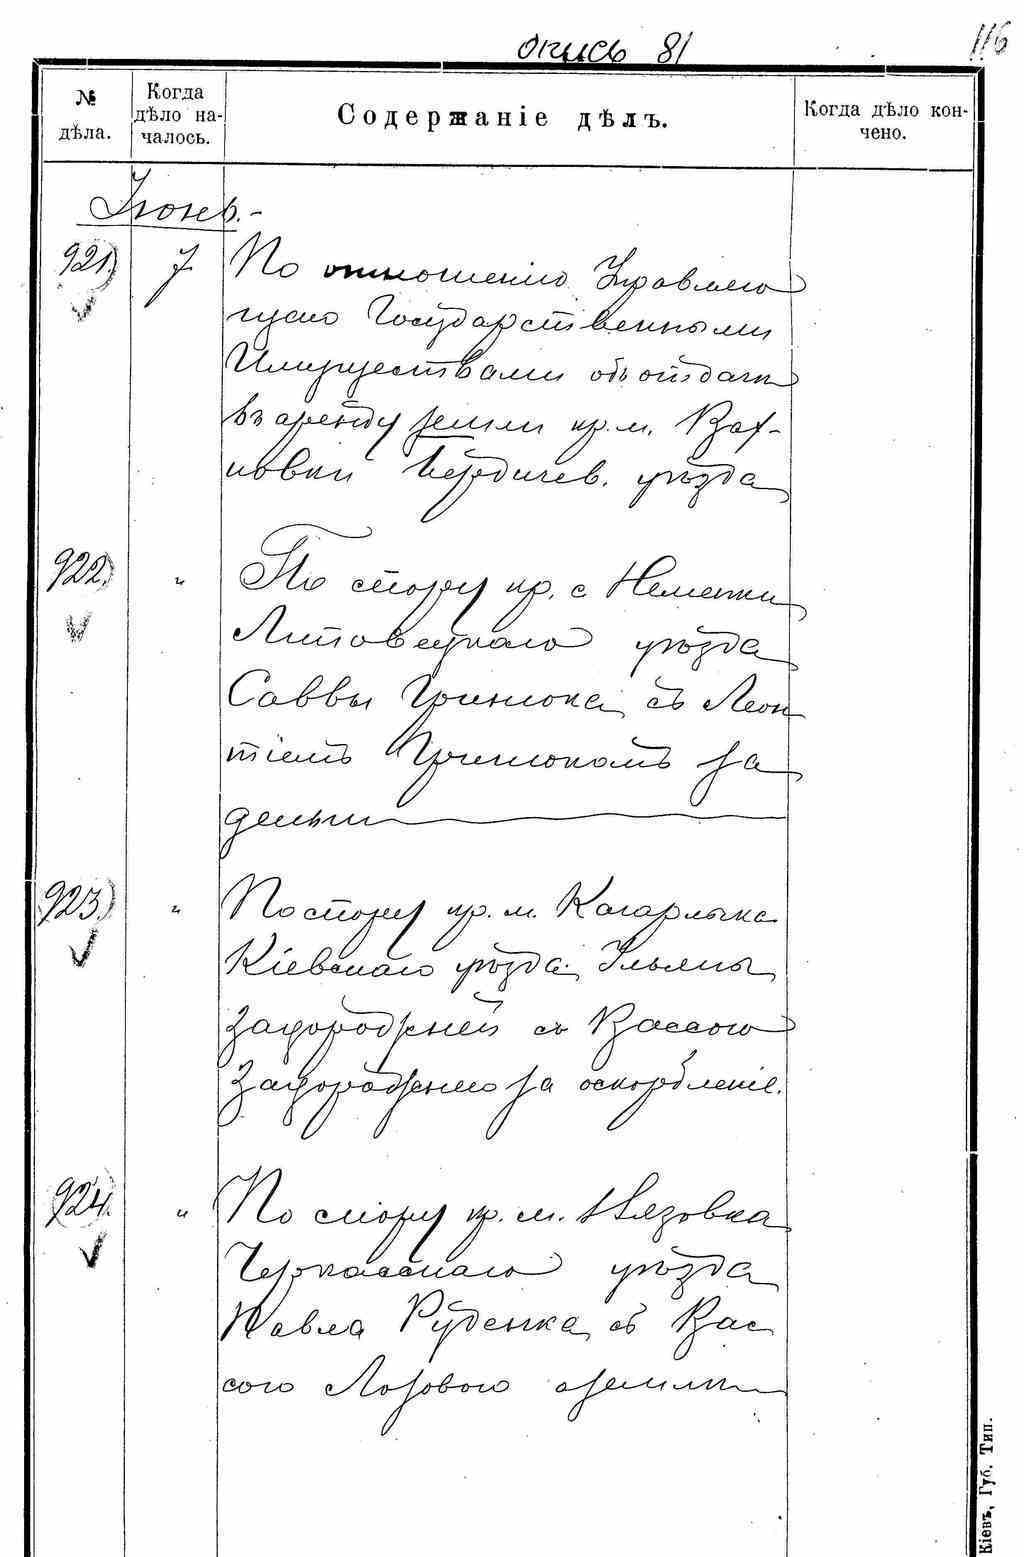 опись 81
116
№ дѣла.
Когда дѣло на-
чалось.
Содержаніе дѣлъ.
Когда дѣло кон-
чено.
Іюнь.-
921) 7 По отношенію Управляю
щаго Государственными
Имуществами объ отдачи
въ аренду земли кр. м. Вах-
новки Бердичев. уѣзда
922) " По спору кр. с
Липовецкаго уѣзда
Саввы Гринюка съ Леон
тіемъ Гринюкомъ за
деньги
923) " По спору кр. м. Кагарлыка
Кіевскаго уѣзда Ульяны
Загородней съ Вассою
Загороднею за оскорбленіе.
924. " По спору кр. м.
Черкасскаго уѣзда
Павла Руденка съ Вас
сою Лозовою о землѣ
Кіевъ, Губ. Тип.